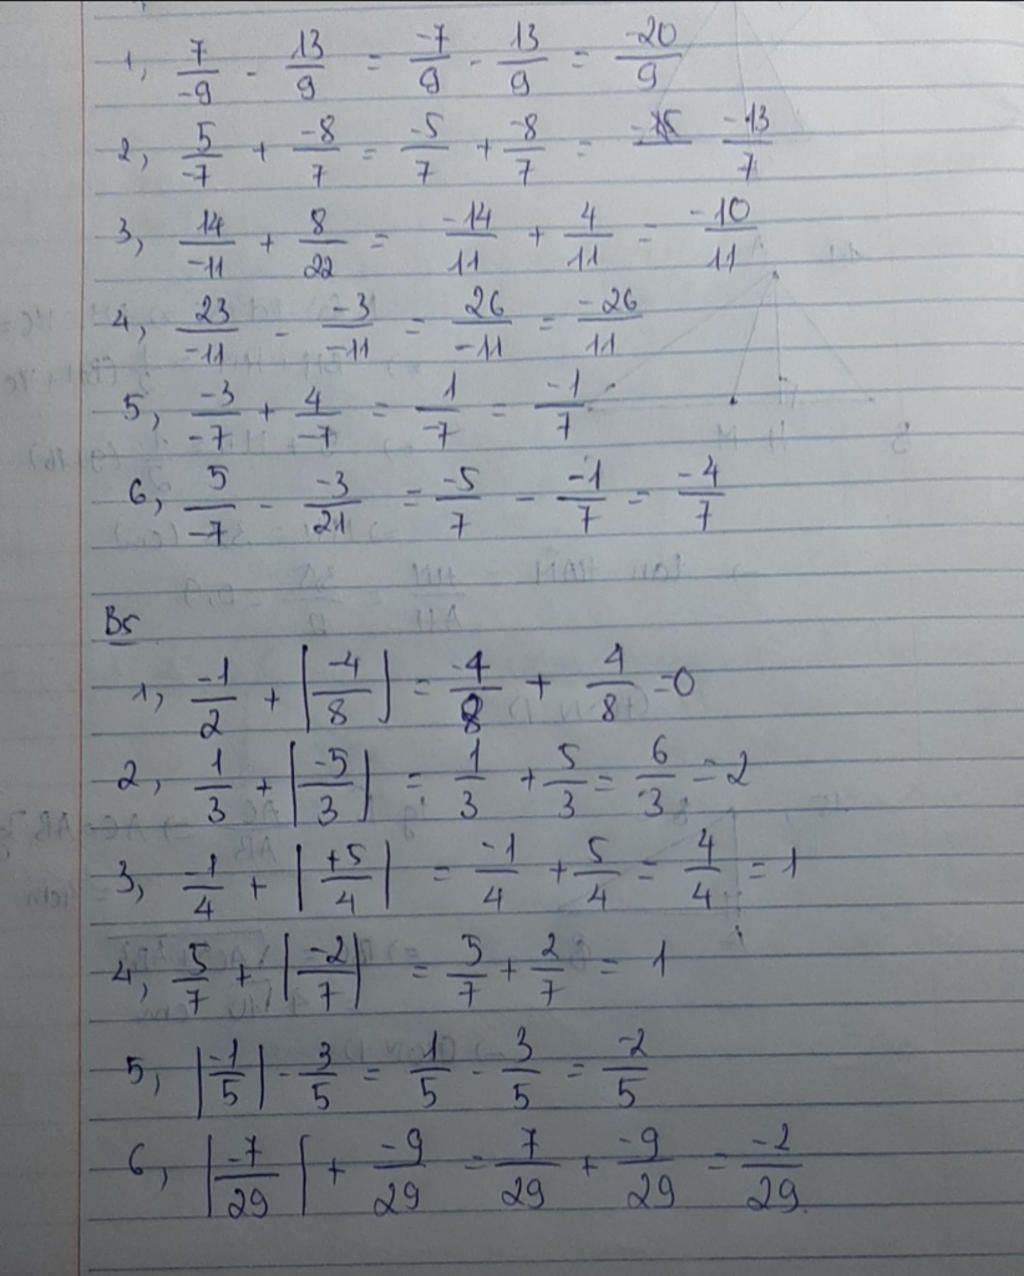 1, 7/-9 - 13/9 = -7/9 - 13/9 = -20/9
2, 5/-7 + -8/7 = -5/7 + -8/7 = -13/7
3, 14/-11 + 8/22 = -14/11 + 4/11 = -10/11
4, 23/-11 - -3/-11 = 26/-11 = -26/11
5, -3/-7 + 4/-7 = 1/-7 = -1/7
6, 5/-7 - -3/21 = -5/7 - -1/7 = -4/7
B5
1, -1/2 + |-4/8| = -4/8 + 4/8 = 0
2, 1/3 + |-5/3| = 1/3 + 5/3 = 6/3 = 2
3, -1/4 + |+5/4| = -1/4 + 5/4 = 4/4 = 1
4, 5/7 + |-2/7| = 5/7 + 2/7 = 1
5, |-1/5| - 3/5 = 1/5 - 3/5 = -2/5
6, |-7/29| + -9/29 = 7/29 + -9/29 = -2/29